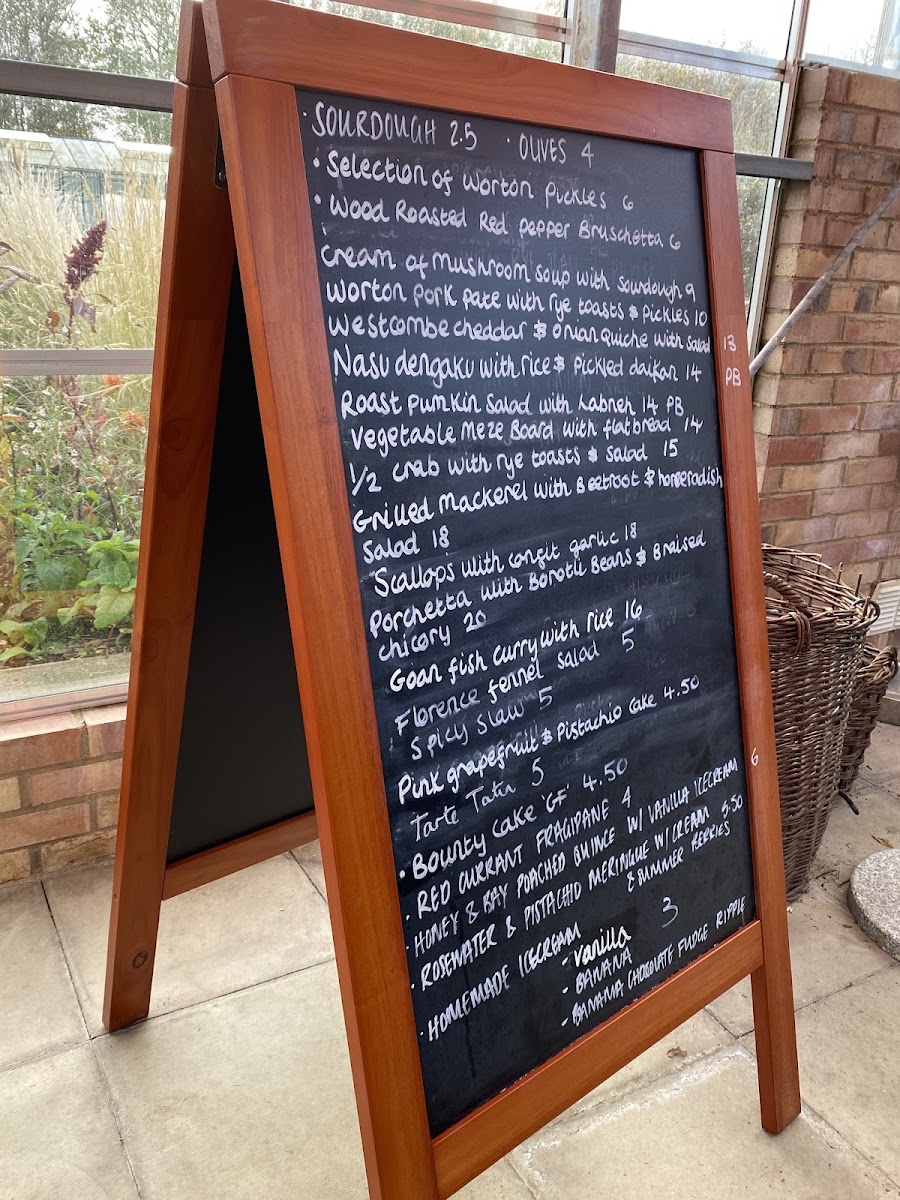 · SOURDOUGH 2.5 · OLIVES 4
• Selection of Worton Pickles 6
• Wood Roasted Red pepper Bruschetta 6
Cream of Mushroom soup with sourdough 9
Worton pork pate with rye toasts & pickles 10
Westcombe cheddar & onion Quiche with salad 13
Nasu dengaku with rice & pickled daikon 14 PB
Roast Pumkin Salad with Labneh 14 PB
Vegetable Meze Board with flatbread 14
1/2 Crab with rye toasts & salad 15
Grilled Mackerel with Beetroot & horseradish
Salad 18
Scallops with confit garlic 18
Porchetta with Borotti Beans & Braised
chicory 20
Goan fish curry with rice 16
Florence fennel salad 5
Spicy slaw 5
Pink grapefruit & Pistachio cake 4.50
Tarte Tatin 5
• Bounty cake 'GF' 4.50
• RED CURRANT FRAGIPANE 4
• HONEY & BAY POACHED QUINCE W/ VANILLA ICECREAM 6
• ROSEWATER & PISTACHIO MERINGUE W/ CREAM 5.50
& SUMMER BERRIES
• HOMEMADE ICECREAM - Vanilla 3
- BANANA
- BANANA CHOCOLATE FUDGE RIPPLE